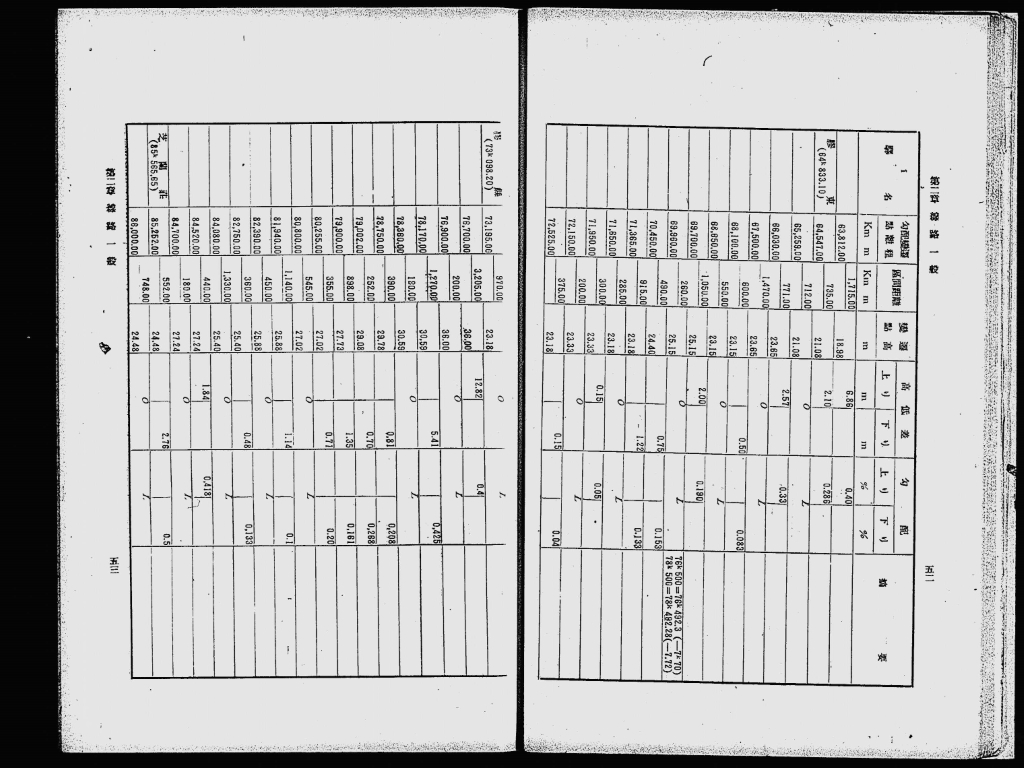 第二章 線路一般
五二
驛名 勾配變更點粁程 區間距離 變更點高 高低差 勾配 摘要
Km m Km m m 上リ m 下リ m 上リ % 下リ %
63,812.00 1,715.00 18.98 6.86 0.40
膠東 (64ᵏ833.10) 64,547.00 735.00 21.08 2.10 0.286
65,259.00 712.00 21.08 0 L
66,030.00 771.00 23.65 2.57 0.33
67,500.00 1,470.00 23.65 0 L
68,100.00 600.00 23.15 0.50 0.083
68,650.00 550.00 23.15 0 L
69,700.00 1,050.00 25.15 2.00 0.190
69,960.00 260.00 25.15 0 L
70,450.00 490.00 24.40 0.75 0.153 76ᵏ500=76ᵏ492.3 (—7ᵏ70) 78ᵏ500=78ᵏ492.28(—7.72)
71,365.00 915.00 23.18 1.22 0.133
71,650.00 285.00 23.18 0 L
71,950.00 300.00 23.33 0.15 0.05
72,150.00 200.00 23.33 0 L
72,525.00 375.00 23.18 0.15 0.04
膠縣 (73ᵏ098.20) 73,195.00 970.00 23.18 0 L
76,700.00 3,205.00 36.00 12.82 0.4
76,900.00 200.00 36.00 0 L
78,170.00 1,270.00 30.59 5.41 0.425
78,360.00 190.00 30.59 0 L
78,750.00 390.00 29.78 0.81 0.208
79,002.00 252.00 29.08 0.70 0.268
79,900.00 898.00 27.73 1.35 0.161
80,255.00 355.00 27.02 0.71 0.20
80,800.00 545.00 27.02 0 L
81,940.00 1,140.00 25.88 1.14 0.1
82,390.00 450.00 25.88 0 L
82,750.00 360.00 25.40 0.48 0.133
84,080.00 1,330.00 25.40 0 L
84,520.00 440.00 27.24 1.84 0.418
84,700.00 180.00 27.24 0 L
芝蘭莊 (85ᵏ565.65) 85,252.00 552.00 24.48 2.76 0.5
86,000.00 748.00 24.48 0 L
第二章 線路一般
五三